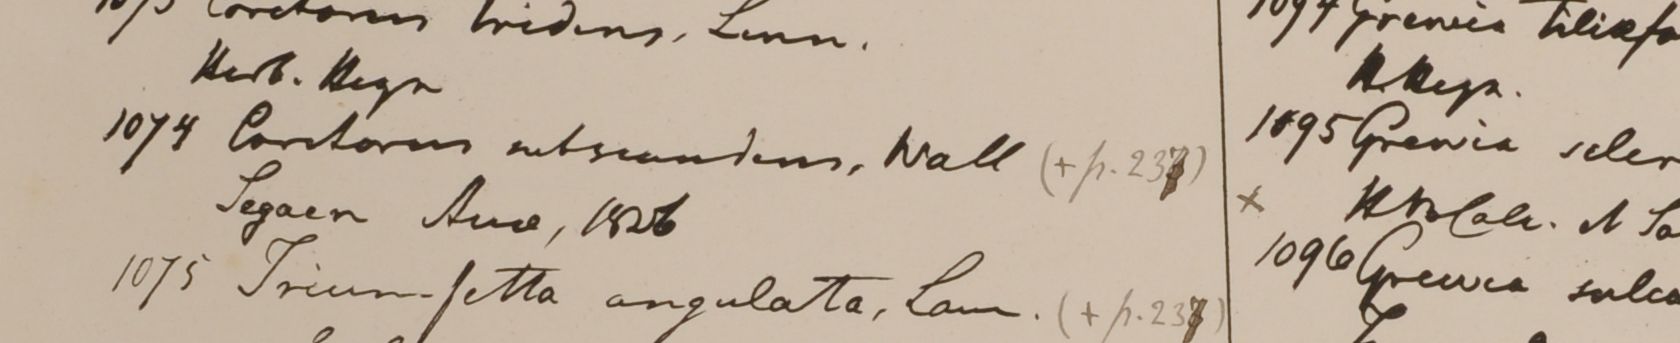 1073 Corchorus tridens, Linn.
Herb. Heyn
1074 Corchorus subscandens, Wall (+ p. 237)
Segaen Ava, 1826
1075 Triumfetta angulata, Lam. (+ p. 237)
1094 Grewia tiliæfo
H. Heyn.
1095 Grewia scler
x H. B. Calc.
1096 Grewia sulca